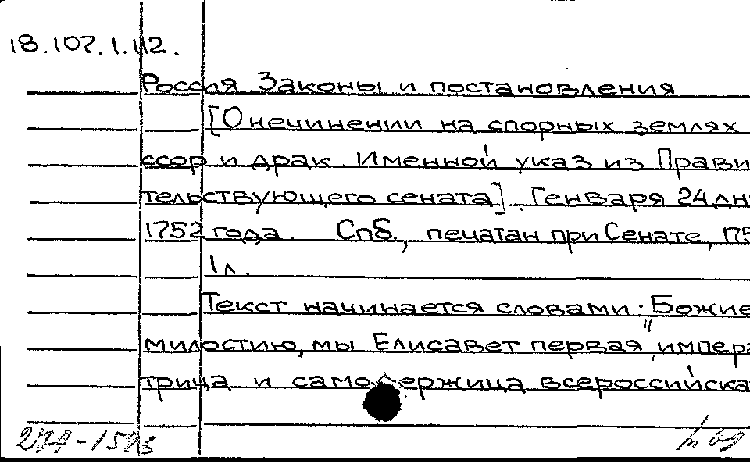 18.107.1.112.
Россия Законы и постановления
[О нечинении на спорных землях
ссор и драк. Именной указ из Прави
тельствующего сената]. Генваря 24 дня
1752 года. Спб., печатан при Сенате, 175
1 л.
Текст начинается словами: Божие
милостию, мы Елисавет первая, импера
трица и самодержица всероссийска